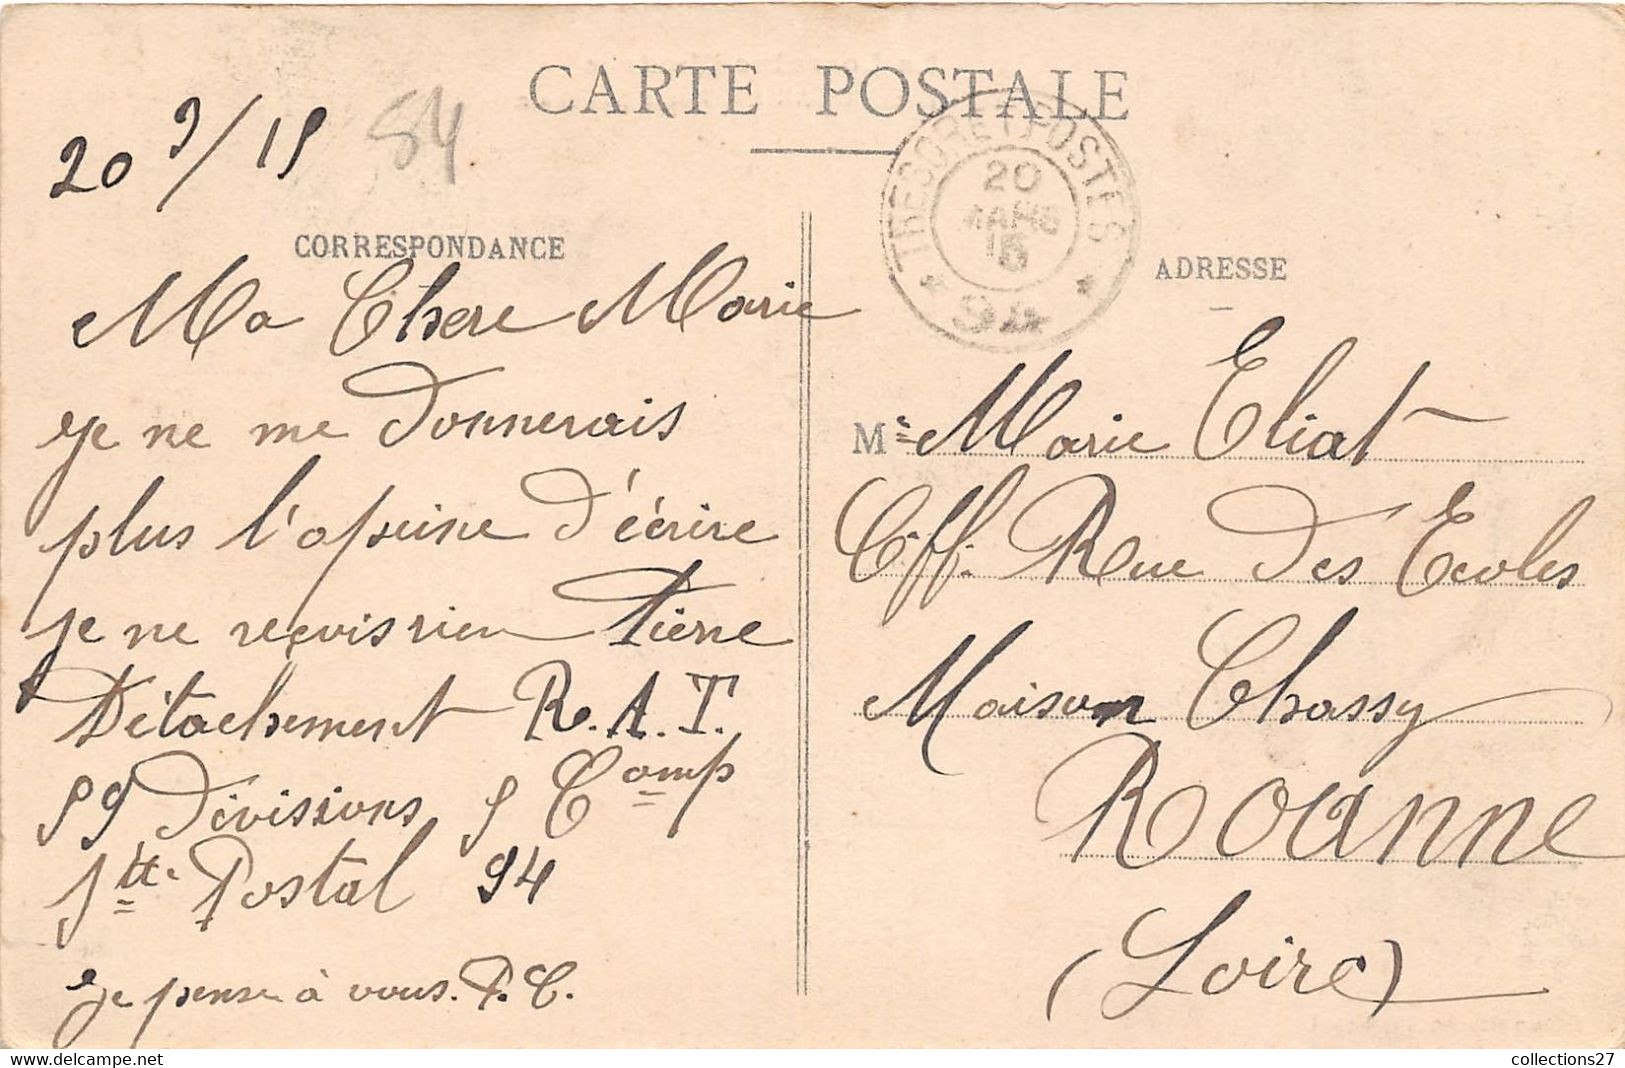 CARTE POSTALE
20 3/15
84
TRESOR ET POSTES
20
MARS
15
* 94 *
CORRESPONDANCE
Ma Chere Marie
je ne me donnerais
plus l'apeine d'écrire
je ne reçvis rien Pierre
Détachement R.A.T.
59 Divisions 5 Comp
Stt. Postal 94
je pense à vous. P.E.
ADRESSE
Me Marie Eliat
Eiff. Rue des Ecoles
Maison Chassy
ROANNE
(Loire)
collections27